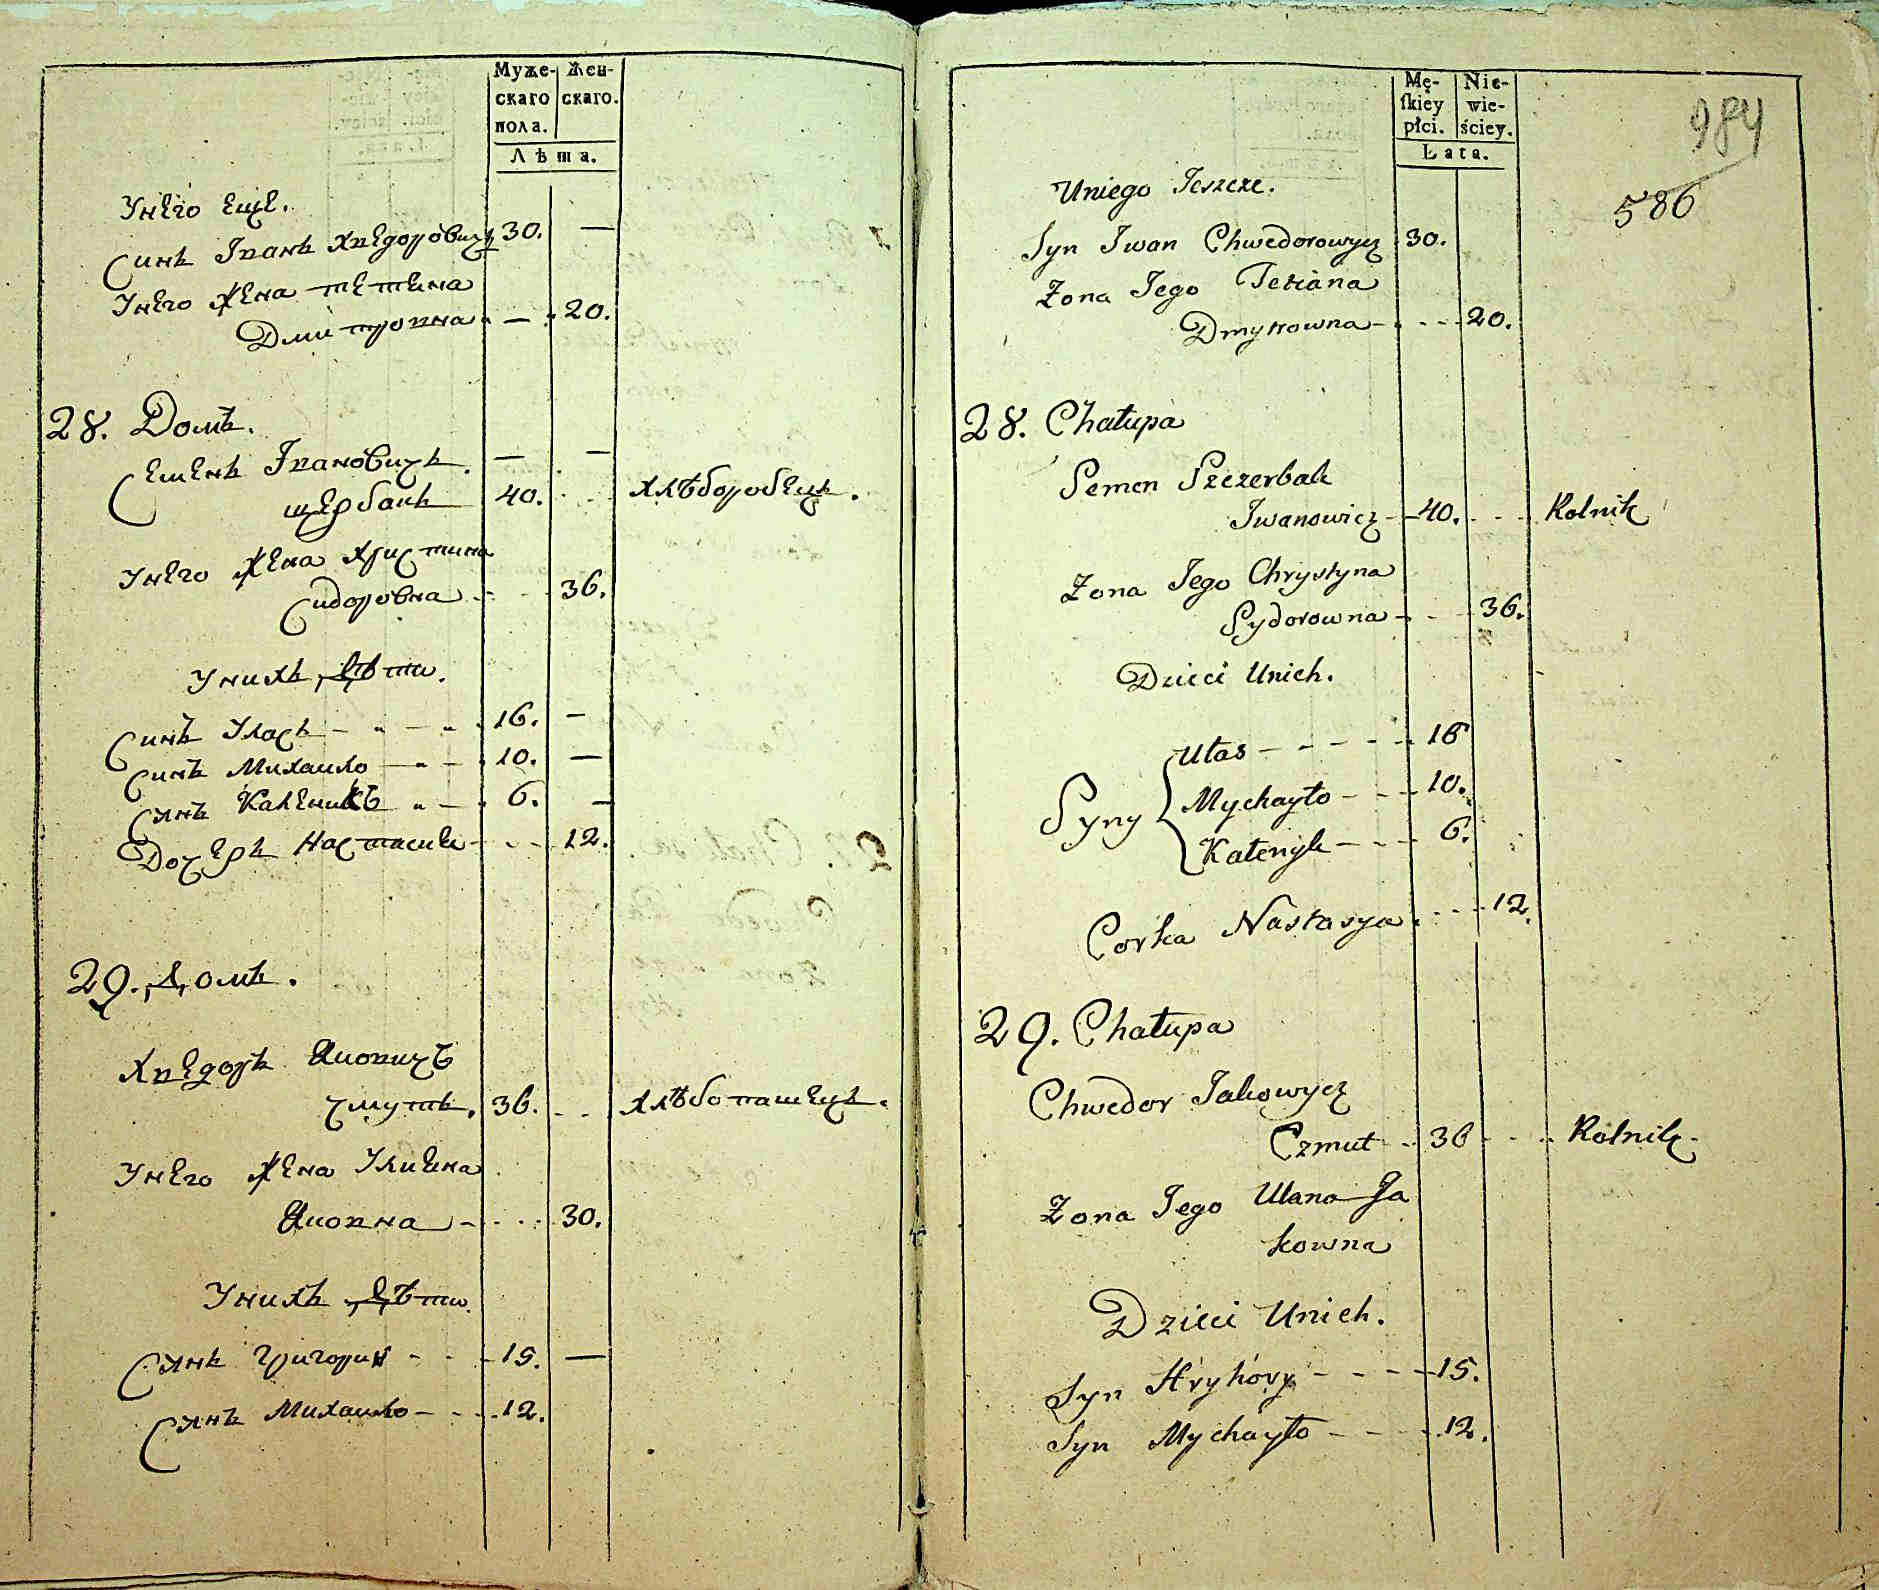 Муже- Жен-
скаго скаго.
пола.
Лѣта.
Унего еще.
Синъ Іванъ Хведоровичъ 30. —
Унего жена тетяна
Дмитровна - — - 20.
28. Домъ.
Семенъ Івановичъ. — —
щербакъ 40. - - хлѣборобецъ.
Унего жена христина
Сидоровна - - - 36.
Унихъ дѣти.
Синъ Уласъ - - - - 16. —
Синъ Михаило - - - 10. —
Синъ Каленикъ - - 6. —
Дочеръ Настасия - - - 12.
29. Домъ.
Хведоръ Яковичъ
чмутъ. 36. - - хлѣбопашецъ.
Унего жена Улияна
Яковна - - - - 30.
Унихъ дѣти.
Синъ григорий - - - 15. —
Синъ Михаило - - - 12.
Mę- Nie-
ſkiey wie-
płci. ściey.
Lata.
984
586
Uniego Jeszcze.
Syn Iwan Chwedorowycz 30.
Żona Jego Tetiana
Dmytrowna - - - - 20.
28. Chałupa
Semen Szczerbak
Iwanowicz - - 40. - - - Rolnik
Żona Jego Chrystyna
Sydorowna - - - 36.
Dzieci Unich.
Ułas - - - - - - 16
Syny { Mychayło - - - 10.
Kałenyk - - - 6.
Corka Nastasya - - - - 12.
29. Chałupa
Chwedor Jakowycz
Czmut - - 36 - - - Rolnik -
Żona Jego Ulana Ja
kowna
Dzieci Unich.
Syn Hryhory - - - - 15.
Syn Mychayło - - - - 12.